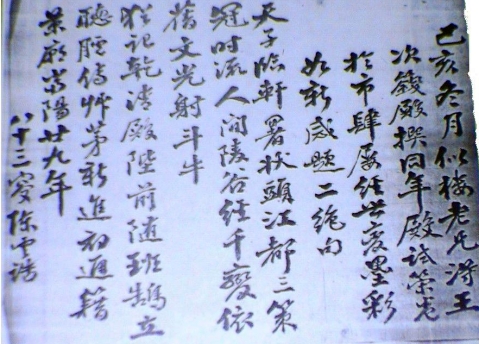 己亥冬月似梅老兄得王
次籛殿撰同年殿試策卷
於市肆屢經世變墨彩
如新感題二絶句
天子臨軒署狀頭江都三策
冠時流人間陵谷經千變依
舊文光射斗牛
猶記乾清殿陛前隨班鵠立
聽臚傳艸茅新進初通籍
景廟當陽廿九年
八十三叟陳雲誥